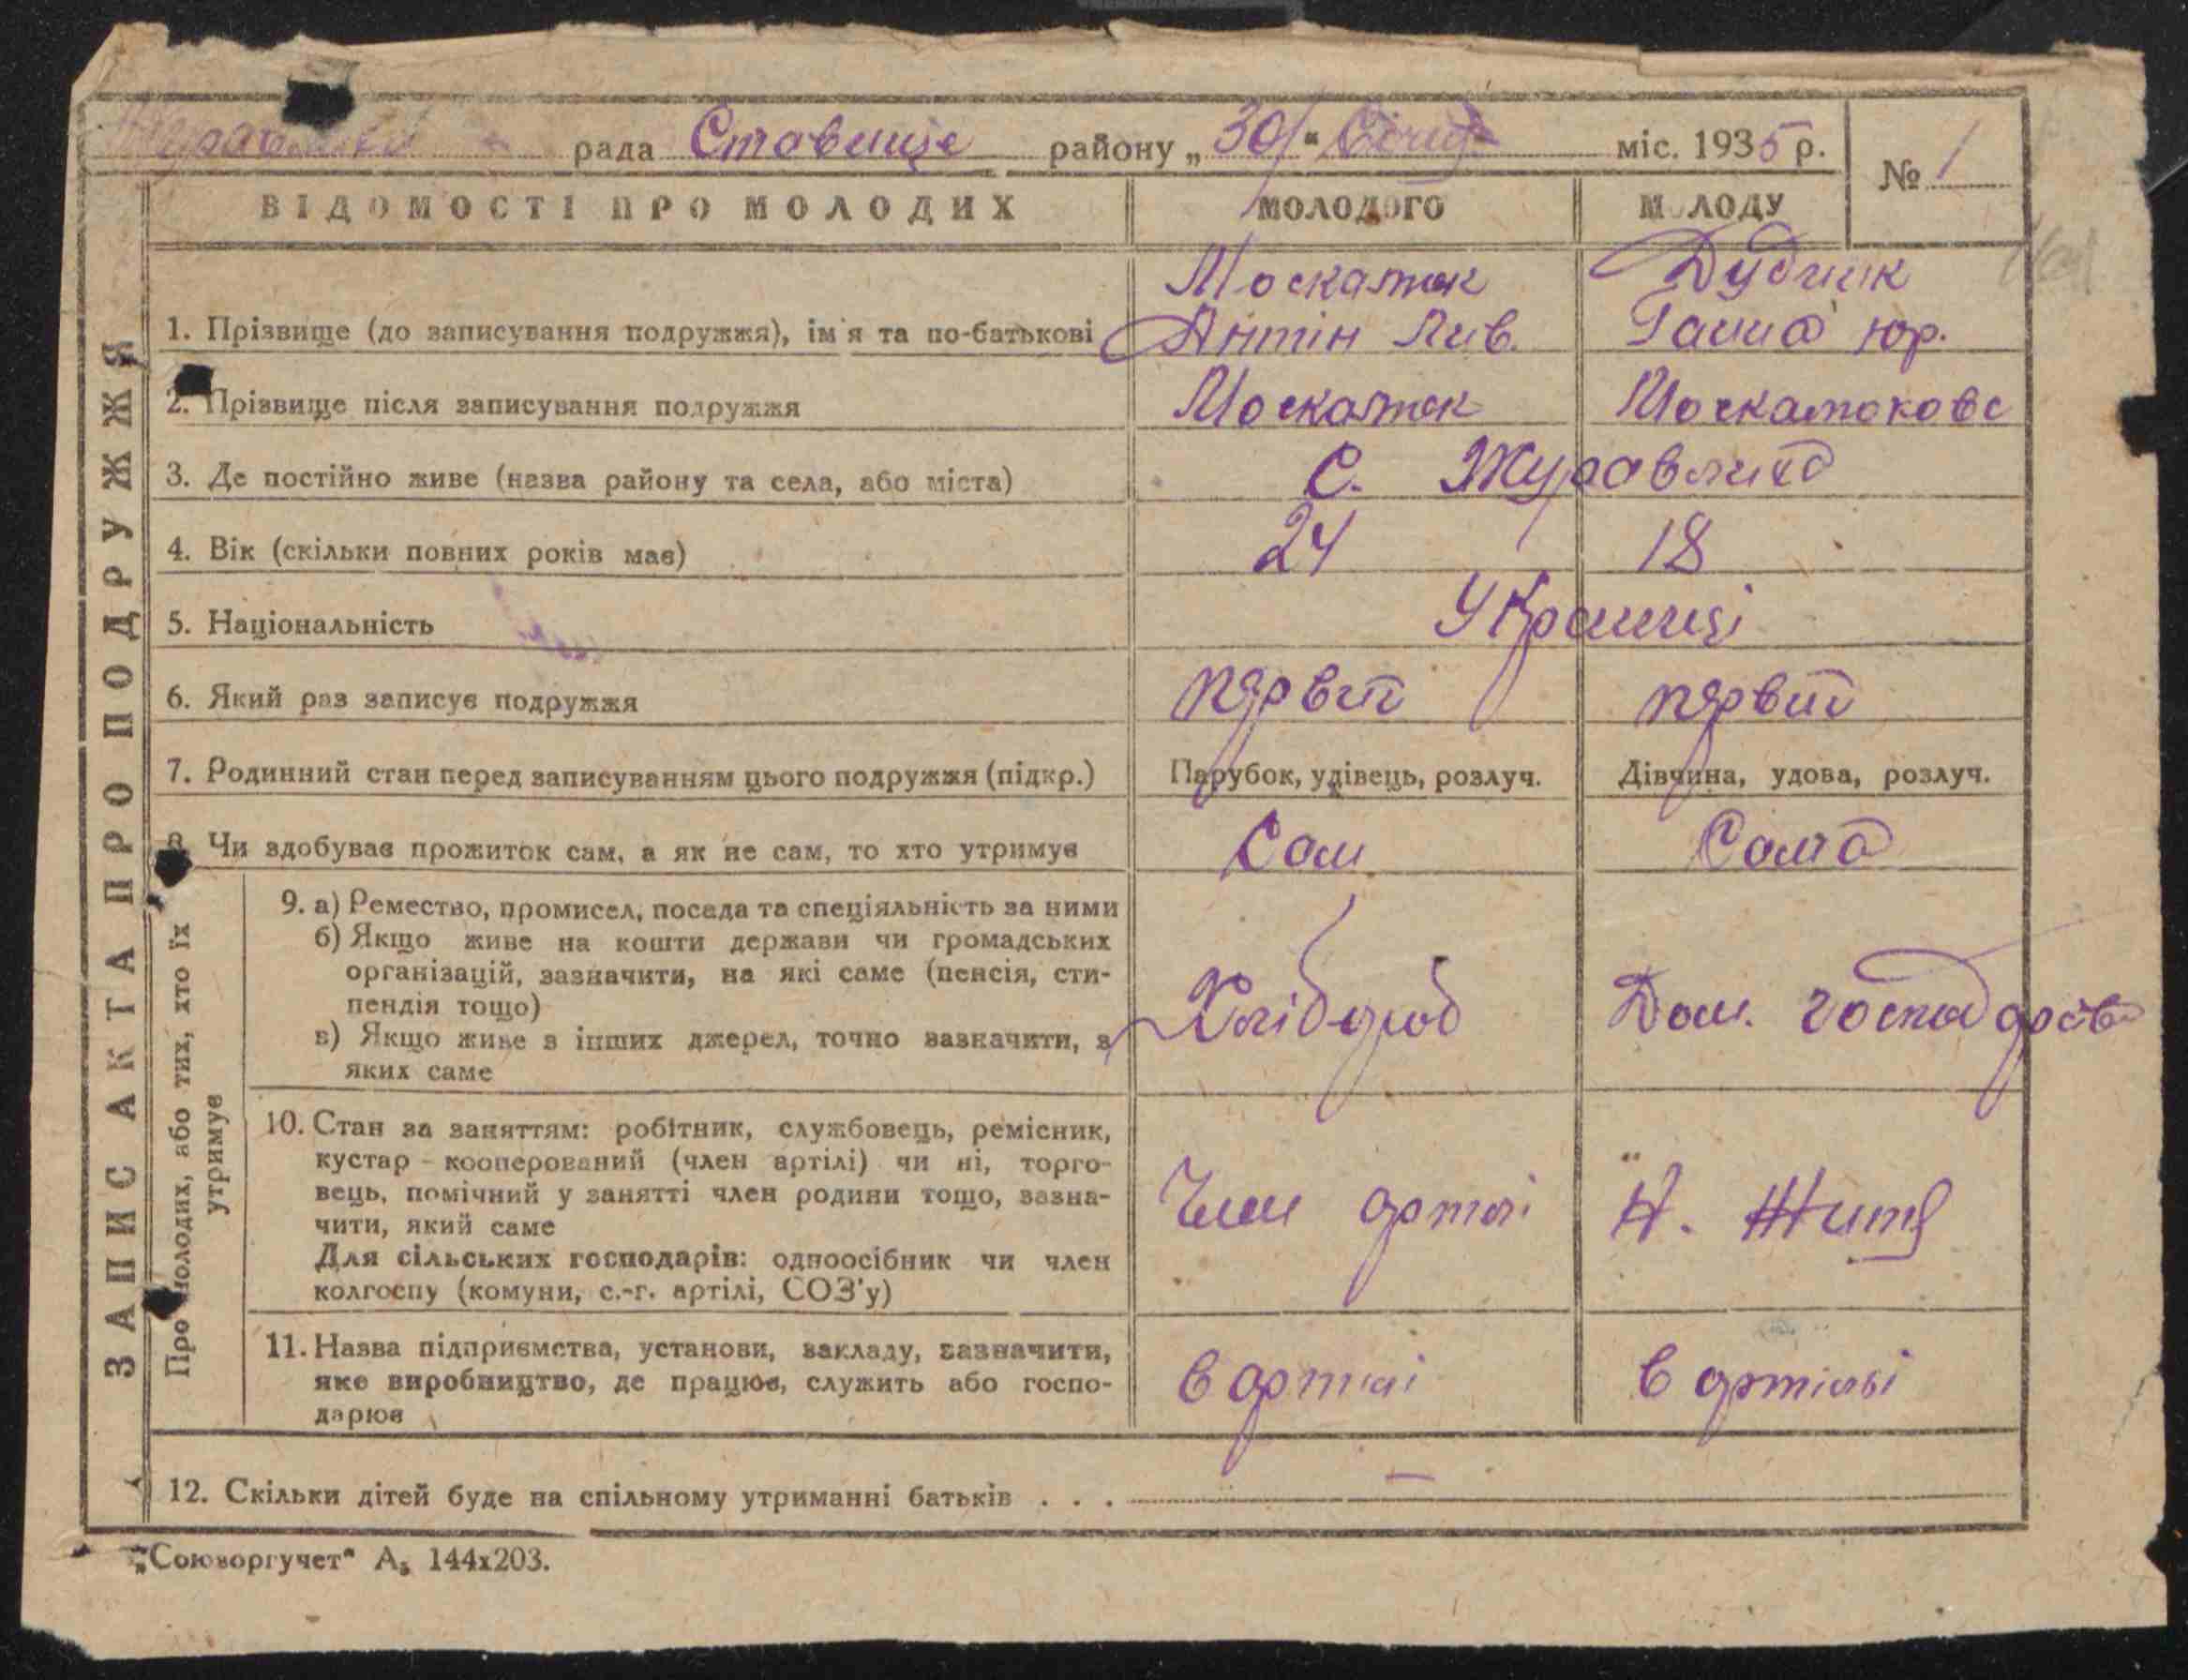 рада Ставище району „30" Січня міс. 1935 р.
№ 1
ВІДОМОСТІ ПРО МОЛОДИХ
МОЛОДОГО
МОЛОДУ
ЗАПИС АКТА ПРО ПОДРУЖЖЯ
1. Прізвище (до записування подружжя), ім'я та по-батькові
Москаток
Антін Лив.
Дубчик
Ганна Юр.
2. Прізвище після записування подружжя
Москаток
Москатокова
3. Де постійно живе (назва району та села, або міста)
С. Журавлиха
4. Вік (скільки повних років має)
24
18
5. Національність
Українці
6. Який раз записує подружжя
первий
первий
7. Родинний стан перед записуванням цього подружжя (підкр.)
Парубок, удівець, розлуч.
Дівчина, удова, розлуч.
8. Чи здобуває прожиток сам, а як не сам, то хто утримує
Сам
Сама
Про молодих, або тих, хто їх
утримує
9. а) Ремество, промисел, посада та спеціяльність за ними
б) Якщо живе на кошти держави чи громадських
організацій, зазначити, на які саме (пенсія, сти-
пендія тощо)
в) Якщо живе з інших джерел, точно зазначити, з
яких саме
Хлібороб
Дом. господарств
10. Стан за заняттям: робітник, службовець, ремісник,
кустар – кооперований (член артілі) чи ні, торго-
вець, помічний у занятті член родини тощо, зазна-
чити, який саме
Для сільських господарів: одноосібник чи член
колгоспу (комуни, с.-г. артілі, СОЗ'у)
Член артілі
11. Назва підприємства, установи, закладу, зазначити,
яке виробництво, де працює, служить або госпо-
дарює
в артілі
в артільі
12. Скільки дітей буде на спільному утриманні батьків . . . —
„Союзоргучет" А₅ 144х203.